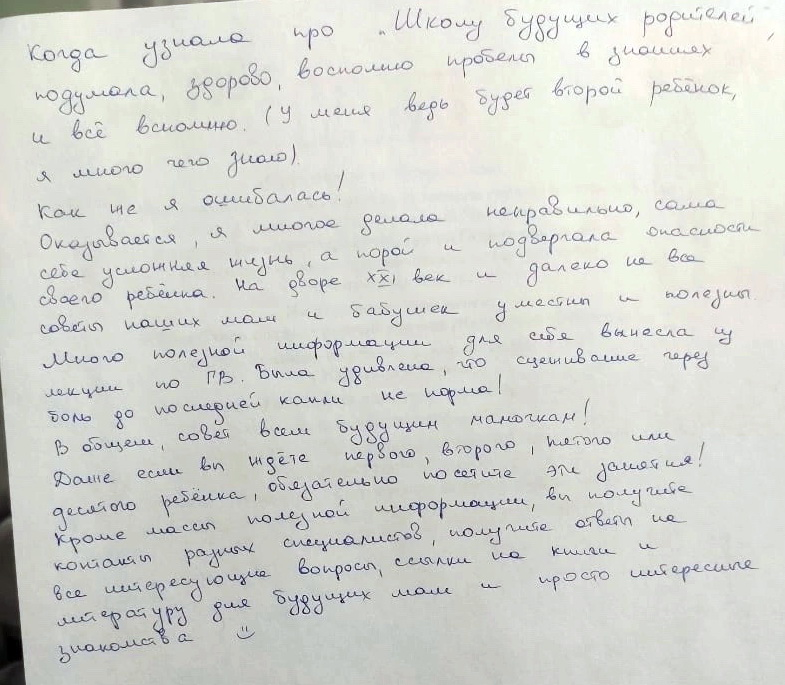 Когда узнала про "Школу будущих родителей",
подумала, здорово, восполню пробелы в знаниях
и всё вспомню. (У меня ведь будет второй ребёнок,
я много чего знаю).
Как же я ошибалась!
Оказывается, я многое делала неправильно, сама
себе усложняя жизнь, а порой и подвергала опасности
своего ребёнка. На дворе XXI век и далеко не все
советы наших мам и бабушек уместны и полезны.
Много полезной информации для себя вынесла из
лекции по ГВ. Была удивлена, что сцеживание через
боль до последней капли не норма!
В общем, совет всем будущим мамочкам!
Даже если вы ждёте первого, второго, пятого или
десятого ребёнка, обязательно посетите эти занятия!
Кроме массы полезной информации, вы получите
контакты разных специалистов, получите ответы на
все интересующие вопросы, ссылки на книги и
литературу для будущих мам и просто интересные
знакомства